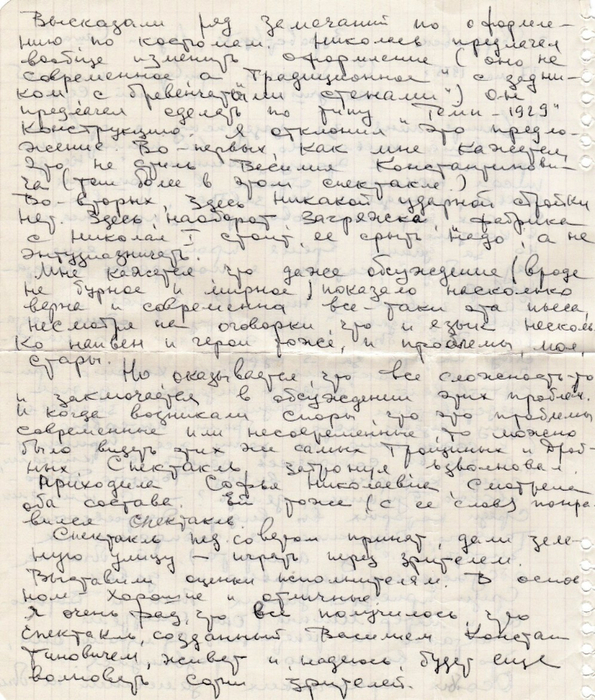 Высказали ряд замечаний по оформле-
нию по костюмам. Николаев предлагал
вообще изменить оформление (оно не
современное а "традиционное" с задни-
ком с бревенчатыми стенами") Он
предлагал сделать по типу "Темп-1929"
Конструкцию. Я отклонил это предло-
жение. Во-первых, как мне кажется,
это не стиль Василия Константинови-
ча (тем более в этом спектакле.)
Во-вторых, здесь никакой ударной стройки
нет. Здесь, наоборот фабрика
с Николая I стоит, ее срыть надо, а не
энтузиазничать.
Мне кажется что даже обсуждение (вроде
не бурное и мирное) показало насколько
верна и современна все-таки эта пьеса,
несмотря на оговорки, что и язык несколь
ко наивен и герои тоже, и проблемы, мол,
стары.
Но оказывается, что вся сложность-то
и заключается в обсуждении этих проблем.
И когда возникали споры, что это проблемы
современные или несовременные, то можно
было видеть этих же самых и
Спектакль затронул взволновал.
Приходила Софья Николаевна, смотрела
оба состава, ей тоже (с ее слов) понра-
вился спектакль.
Спектакль худ. советом принят, дали зеле-
ную улицу – играть перед зрителем.
Выставили оценки исполнителям. В основ
ном хорошие и отличные.
Я очень рад, что все получилось, что
спектакль, созданный Василием Констан
тиновичем, живет и надеюсь, будет еще
волновать сотни зрителей.